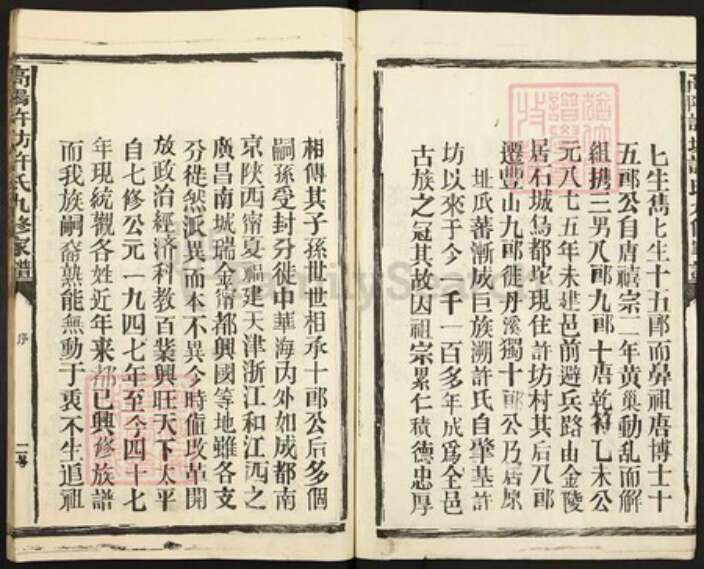 七生雋七生十五郎而彝祖唐博士十
五郎公自唐禧宗二年黄巢動乱而解
組携三男八郎九郎十唐乾符乙未公
元八七五年未建邑前避兵路由金陵
居石城烏都坨現住許坊村其后八郎
遷豐山九郎徙丹溪獨十郎公乃居原
址瓜蕃漸成巨族溯許氏自肇基許
坊以来于今一千一百多年成爲全邑
古族之冠其故因祖宗累仁積德忠厚
相傳其子孫世世相承十郎公后多個
嗣孫受封分徙中華海内外如成都南
京陕西甯夏福建天津浙江和江西之
廣昌南城瑞金甯都興國等地雖各支
分徙然派異而本不異今時值改革開
放政治經济科教百業興旺天下太平
自七修公元一九四七年至今四十七
年現統觀各姓近年来都已興修族譜
而我族嗣裔熟能無動于衷不生追祖
高陽許坊許氏九修家譜
序
二号
FamilySearch